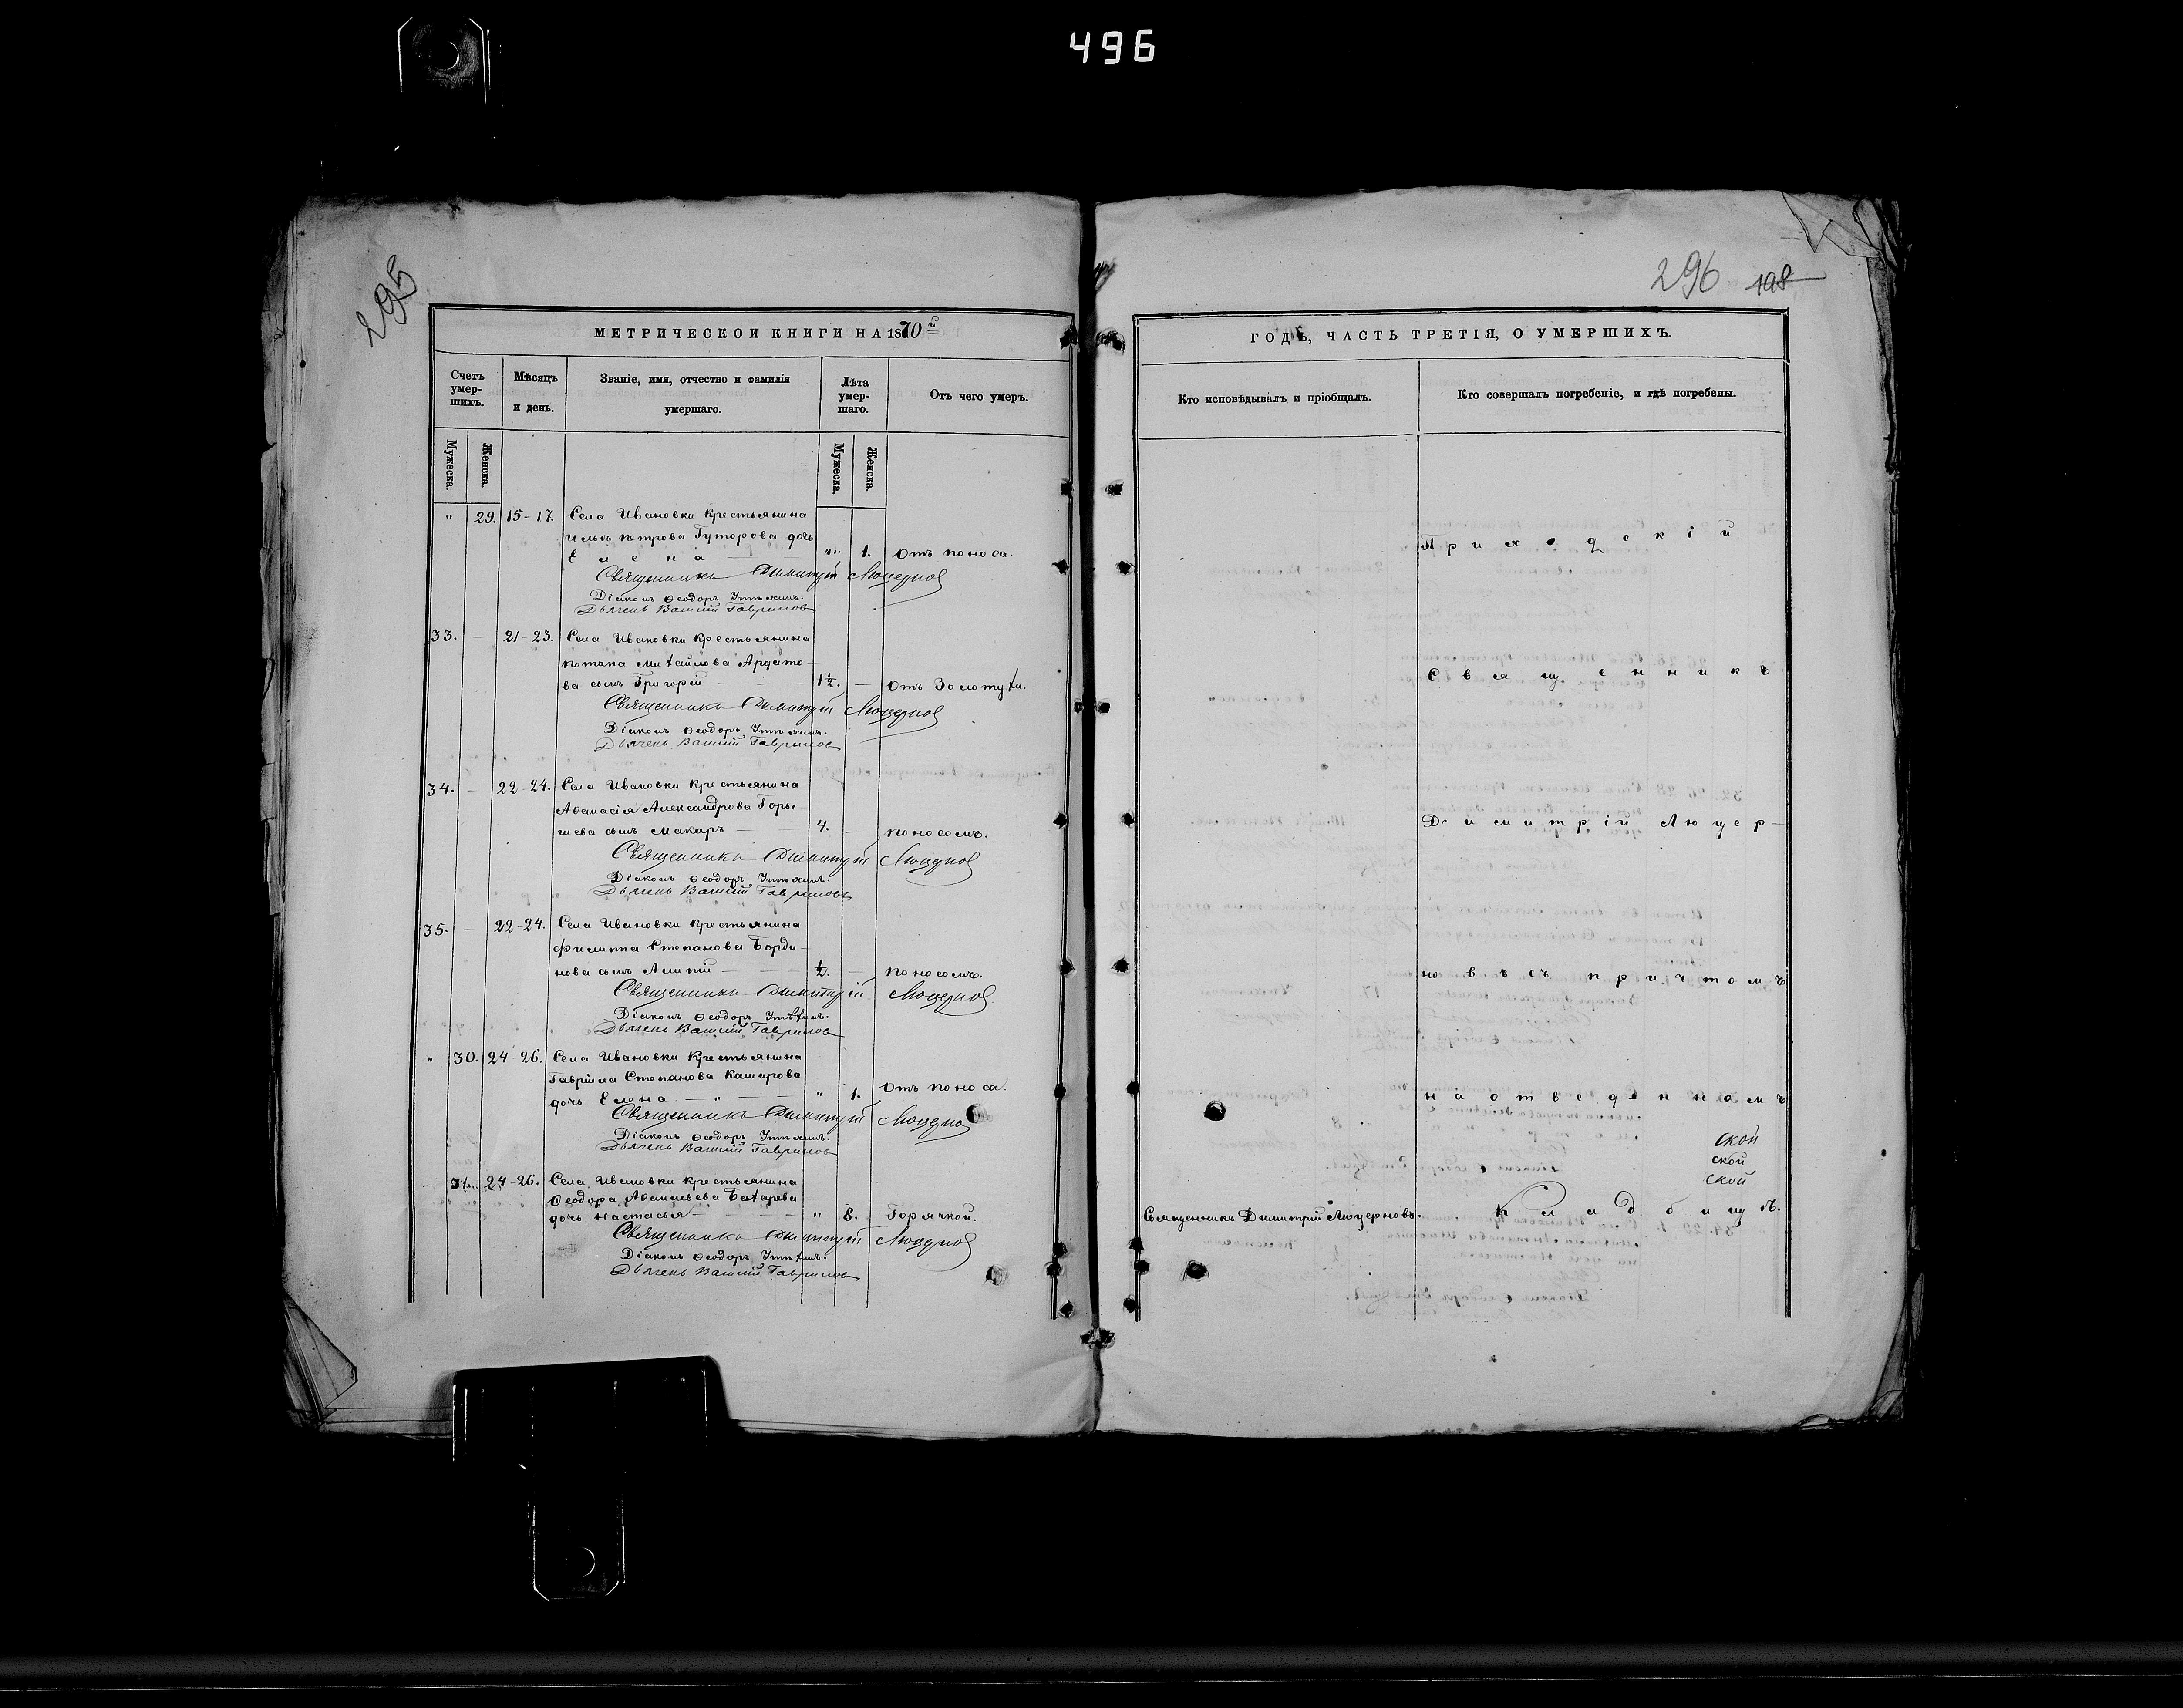 496
295
МЕТРИЧЕСКОЙ КНИГИ НА 1870й
Счетъ умер-шихъ.
Мѣсяцъ и день.
Званіе, имя, отчество и фамилія умершаго.
Лѣта умер-шаго.
Отъ чего умеръ.
Мужеска. Женска.
Мужеска. Женска.
" 29. 15-17. Села Ивановки крестьянина
Ильи Петрова Гуторова дочь
Елена "" 1. Отъ поноса.
Священникъ Димитрій Люцернов
Діаконъ Ѳеодоръ
Дьячекъ Василій Гаврилов
33. – 21-23. Села Ивановки крестьянина
Потапа Михайлова Ардато-
ва сынъ Григорій 1½. – Отъ Золотухи.
Священникъ Димитрій Люцернов
Діаконъ Ѳеодоръ
Дьячекъ Василій Гаврилов
34. – 22-24. Села Ивановки крестьянина
Аѳанасія Александрова
сынъ Макаръ 4. – Поносомъ.
Священникъ Димитрій Люцернов
Діаконъ Ѳеодоръ
Дьячекъ Василій Гавриловъ
35. – 22-24. Села Ивановки крестьянина
Филиппа Степанова
нова сынъ Алипій ½. – Поносомъ.
Священникъ Димитрій Люцернов
Діаконъ Ѳеодоръ
Дьячекъ Василій Гаврилов
" 30. 24-26. Села Ивановки крестьянина
Гавріила Степанова Каширова
дочь Елена – " – " 1. Отъ поноса.
Священникъ Димитрій Люцернов
Діаконъ Ѳеодоръ
Дьячекъ Василій Гаврилов
– 31. 24-26. Села Ивановки крестьянина
Ѳеодора
дочь Настасья " 8. Горячкой.
Священникъ Димитрій Люцернов
Діаконъ Ѳеодоръ
Дьячекъ Василій Гаврилов
296 198
ГОДЪ, ЧАСТЬ ТРЕТІЯ, О УМЕРШИХЪ.
Кто исповѣдывалъ и пріобщалъ.
Кто совершалъ погребеніе, и гдѣ погребены.
Приходскій
Священникъ
Димитрій Люцер-
новъ съ причтомъ
на отведенномъ
ской
ской
ской
Священникъ Димитрій Люцерновъ. Кладбищѣ.